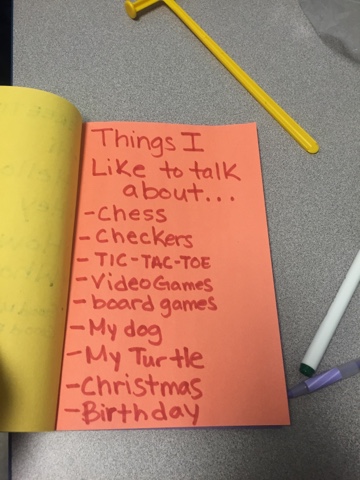 Things I
Like to talk
about...
-Chess
-Checkers
-TIC-TAC-TOE
-VideoGames
-board games
-My dog
-My Turtle
-Christmas
-Birthday